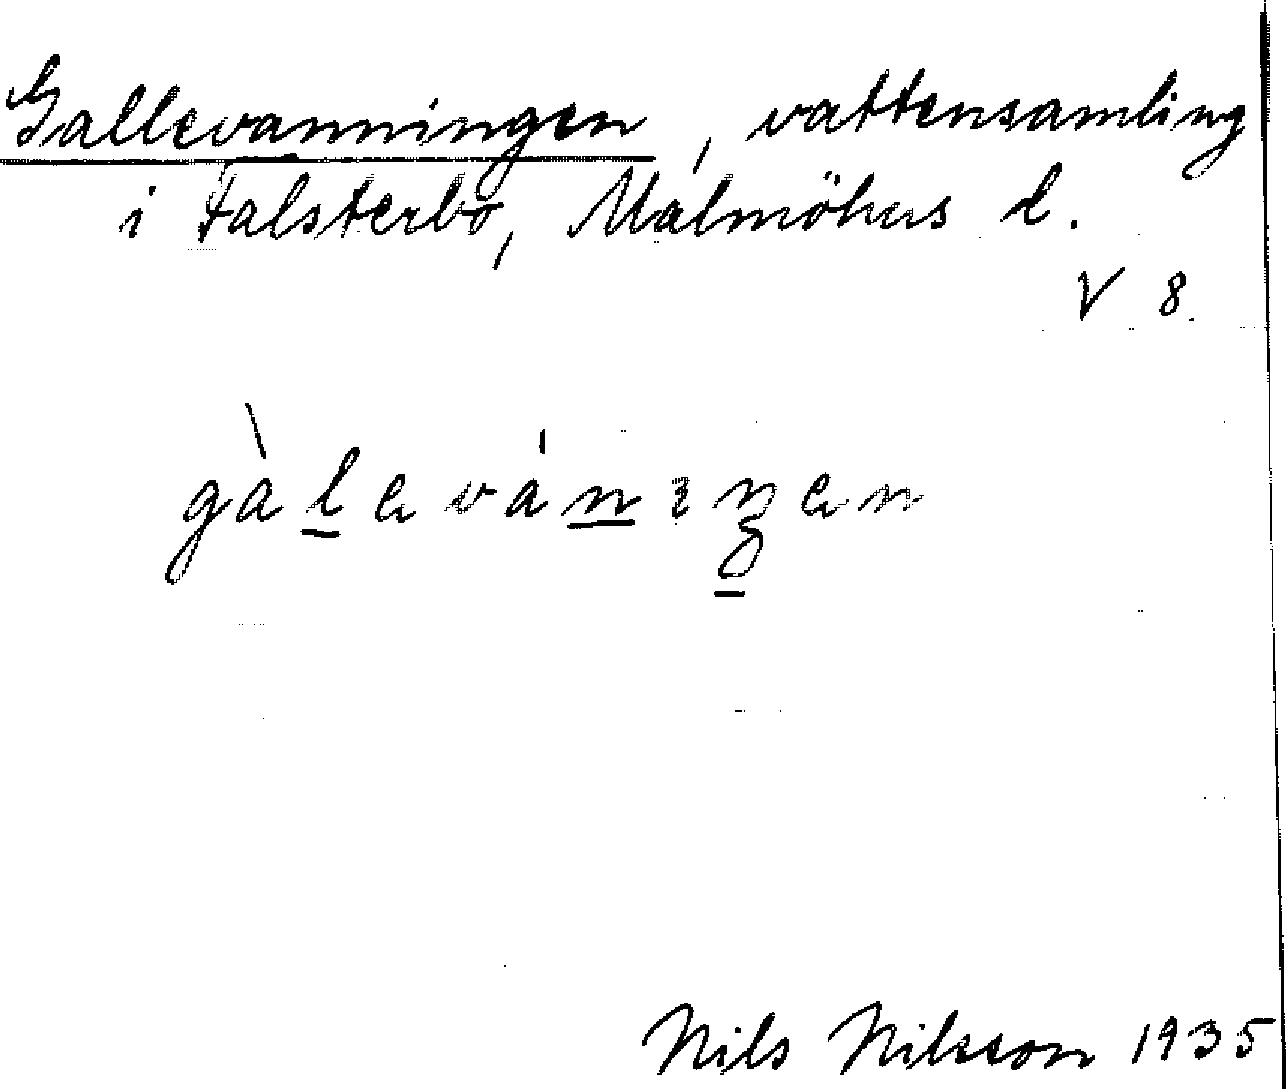 Gallevanningen, vattensamling
i Falsterbo, Malmöhus l.
V 8.
gàlevánıŋen
Nils Nilsson 1935